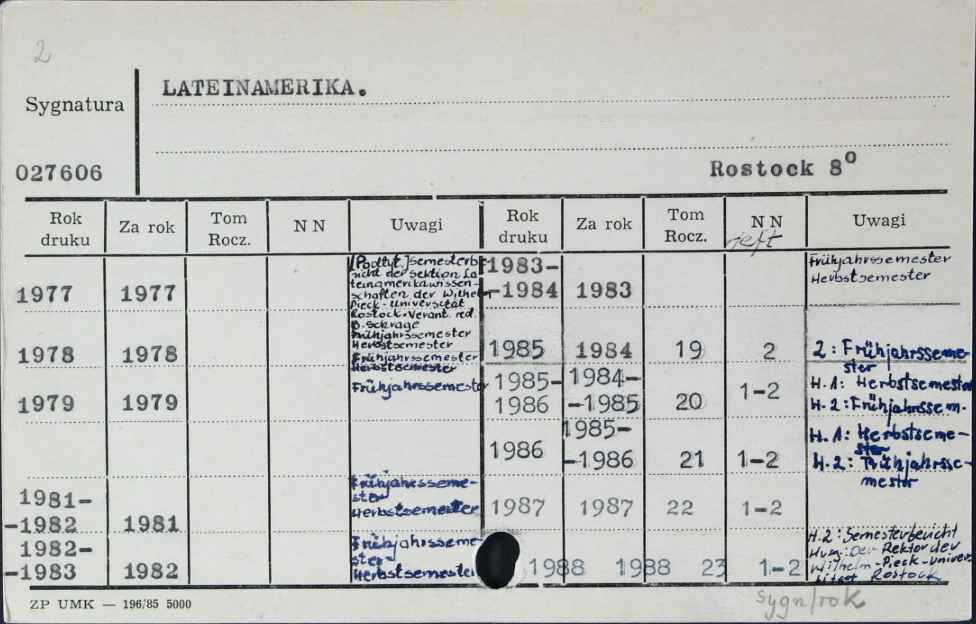 2
LATEINAMERIKA.
Sygnatura
027606
Rostock 8⁰
Rok druku | Za rok | Tom Rocz. | N N | Uwagi | Rok druku | Za rok | Tom Rocz. | N N | Uwagi
1977 1977
[Podtyt.] Semesterbe-
richt der Sektion La-
teinamerikawissen-
schaften der Wilhelm
Pieck-Universität
Rostock. Verant. red.
B. Schrage
Frühjahrssemester
Herbstsemester
1978 1978
Frühjahrssemester
Herbstsemester
1979 1979 Frühjahrssemester
1981-
-1982 1981
Frühjahrsseme-
ster
Herbstsemester
1982-
-1983 1982
Frühjahrsseme-
ster-
Herbstsemester
1983-
-1984 1983
Frühjahrssemester
Herbstsemester
1985 1984 19 2
2: Frühjahrsseme-
ster
1985- 1984-
1986 -1985 20 1-2
H. 1: Herbstsemester
H. 2: Frühjahrssem.
1986 1985-
-1986 21 1-2
H. 1: Herbstseme-
ster
H. 2: Frühjahrsse-
mester
1987 1987 22 1-2
1988 1988 23 1-2
H. 2: Semesterbericht
Der Rektor der
Wilhelm-Pieck-Univer-
sität Rostock
ZP UMK — 196/85 5000
sygn/rok